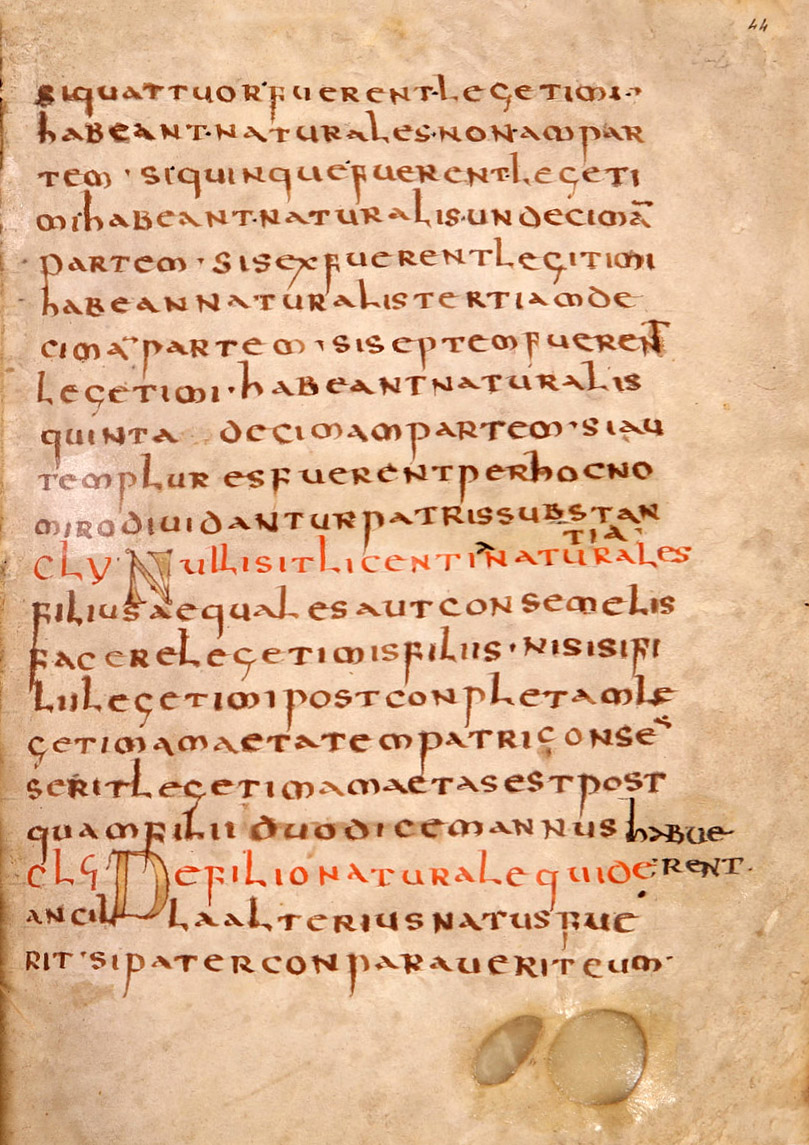 44
siquattuor·fuerent·legetimi·
habeant·naturales·nonam par
tem · si quinque fuerent·legeti
mi habeant·naturalis·undecimā
partem · si sex fuerent legitimi
habean naturalis tertiamde
cimā partem · si septem fuerent
legetimi · habeant naturalis
quinta decimam partem · si au
tem plures fuerent per hoc no
miro diuidantur patris substan
tia·
CLV Nulli sit licenti naturales
filius aequales aut consemelis
facere legetimis filiis · nisi si fi
lii legetimi post conpletam le
getimam aetatem patri conse
serit legetima maetas est post
quam filii duodicem annus habue
rent·
CLVI De filio naturale qui de
ancil la alterius natus fue
rit · si pater conparauerit eum·